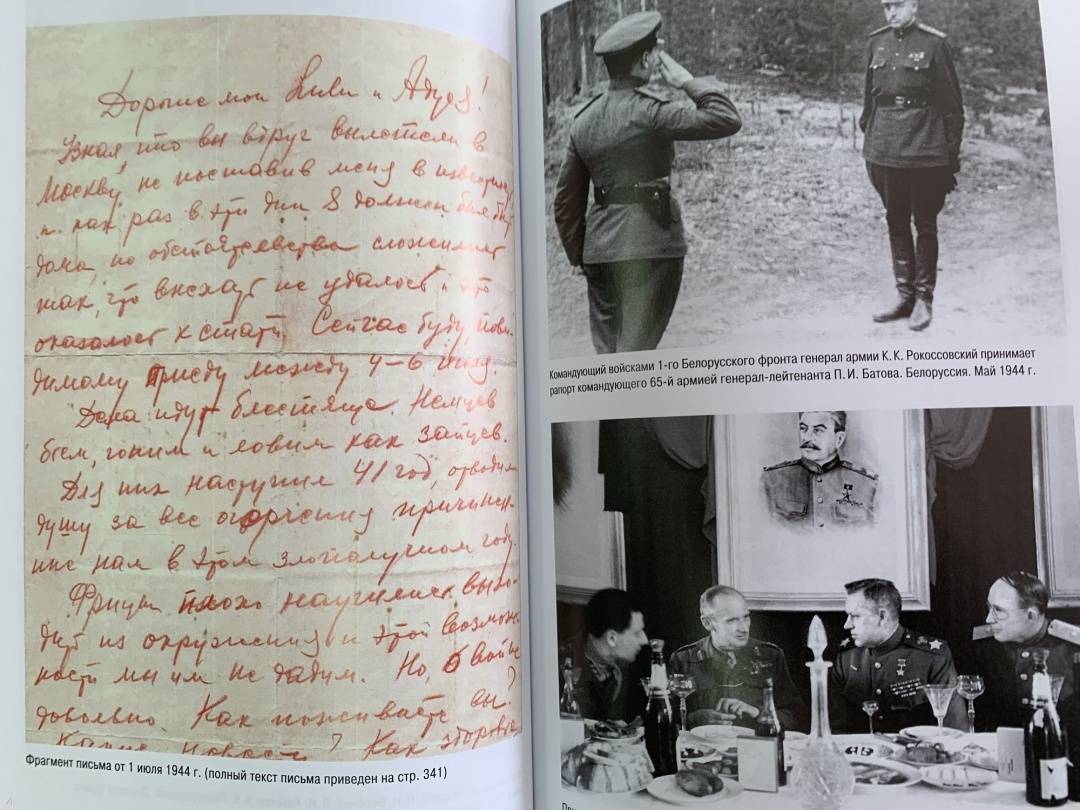 Дорогие мои Люлю и Адуся!
Узнал, что вы вдруг вылетели в
Москву, не поставив меня в известность,
а как раз в эти дни я должен был быть
дома, но обстоятельства сложились
так, что выехать не удалось и это
оказалось кстати. Сейчас буду, пови-
димому приеду между 4–6 июл.
Дела идут блестяще. Немцев
бьем, гоним и ловим как зайцев.
Для них наступил 41 год, отводим
душу за все огорчения причинен-
ные нам в этом злополучном году.
Фрицы плохо научились выхо-
дить из окружения и этой возмож-
ности мы им не дадим. Но, о войне
довольно. Как поживаете вы?
Какие новости? Как здоровье
Фрагмент письма от 1 июля 1944 г. (полный текст письма приведен на стр. 341)
Командующий войсками 1-го Белорусского фронта генерал армии К. К. Рокоссовский принимает
рапорт командующего 65-й армией генерал-лейтенанта П. И. Батова. Белоруссия. Май 1944 г.